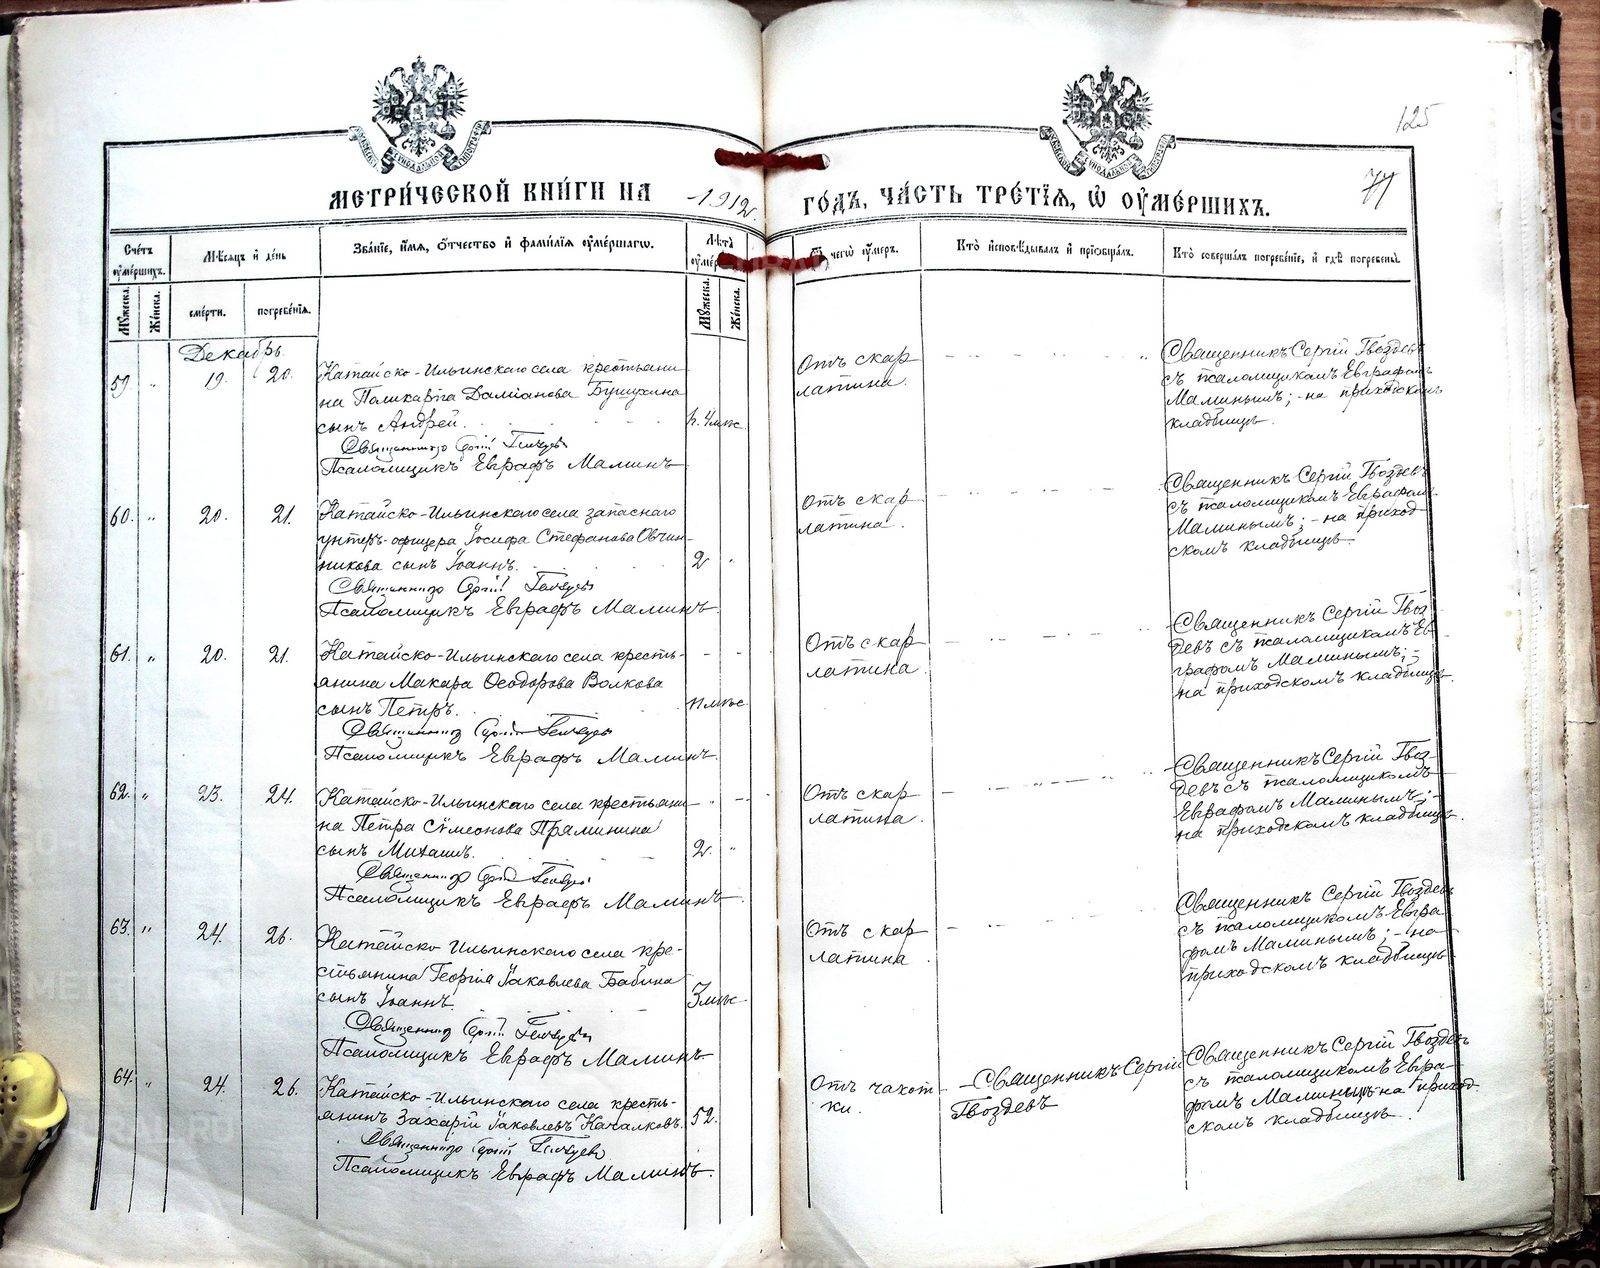 125
МЕТРИ́ЧЕСКОЙ КНИ́ГИ НА 1912 г.
ГО́ДЪ, ЧА́СТЬ ТРЕ́ТІЯ, Ѡ ОУ҆МЕ́РШИХЪ.
77
Сче́тъ оу҆ме́ршихъ.
Мѣ́сяцъ и҆ де́нь
Зва́нїе, и҆́мя, ѻ҆́тчество и҆ фами́лїя оу҆ме́ршагѡ.
Лѣ́та
чегѡ̀ оу҆́меръ.
Кто̀ и҆сповѣ́дывалъ и҆ прїѡбща́лъ.
Кто̀ соверша́лъ погребе́нїе, и҆ гдѣ̀ погребены̀.
Мꙋ́жеска.
Же́нска.
сме́рти.
погребе́нїя.
Мꙋ́жеска.
Же́нска.
Декабрь
59 " 19. 20. Катайско-Ильинскаго села крестьяни-
на Поликарпа Даміанова
сынъ Андрей.
Священникъ Сергій Гвоздевъ
Псаломщикъ Евграфъ Маминъ
Отъ скар
латина.
Священникъ Сергій Гвоздевъ
съ псаломщикомъ Евграфомъ
Маминымъ; - на приходскомъ
кладбищѣ.
60. " 20. 21. Катайско-Ильинскаго села запаснаго
унтеръ-офицера Іосифа Стефанова Овчин-
никова сынъ Іоаннъ. 2 "
Священникъ Сергій Гвоздевъ
Псаломщикъ Евграфъ Маминъ.
Отъ скар
латина.
Священникъ Сергій Гвоздевъ
съ псаломщикомъ Евграфомъ
Маминымъ; - на приход-
скомъ кладбищѣ.
61. " 20. 21. Катайско-Ильинскаго села кресть-
янина Макара Ѳеодорова Волкова
сынъ Петръ.
Священникъ Сергій Гвоздевъ
Псаломщикъ Евграфъ Маминъ.
Отъ скар
латина.
Священникъ Сергій Гвоз-
девъ съ псаломщикомъ Ев-
графомъ Маминымъ; -
на приходскомъ кладбищѣ.
62. " 23. 24. Катайско-Ильинскаго села крестьяни-
на Петра Сѵмеонова Пряминина
сынъ Михаилъ. 2. "
Священникъ Сергій Гвоздевъ
Псаломщикъ Евграфъ Маминъ.
Отъ скар
латина.
Священникъ Сергій Гвоз-
девъ съ псаломщикомъ
Евграфомъ Маминымъ; -
на приходскомъ кладбищѣ.
63. " 24. 26. Катайско-Ильинскаго села кре-
стьянина Георгія Іаковлева Бабина
сынъ Іоаннъ. 3 мѣс
Священникъ Сергій Гвоздевъ
Псаломщикъ Евграфъ Маминъ
Отъ скар
латина.
Священникъ Сергій Гвоздевъ
съ псаломщикомъ Евгра-
фомъ Маминымъ; - на
приходскомъ кладбищѣ
64. " 24. 26. Катайско-Ильинскаго села кресть-
янинъ Захарій Іаковлевъ Качалковъ. 52.
Священникъ Сергій Гвоздевъ
Псаломщикъ Евграфъ Маминъ.
Отъ чахот
ки.
Священникъ Сергій
Гвоздевъ
Священникъ Сергій Гвоздевъ
съ псаломщикомъ Евгра-
фомъ Маминымъ на приход-
скомъ кладбищѣ.